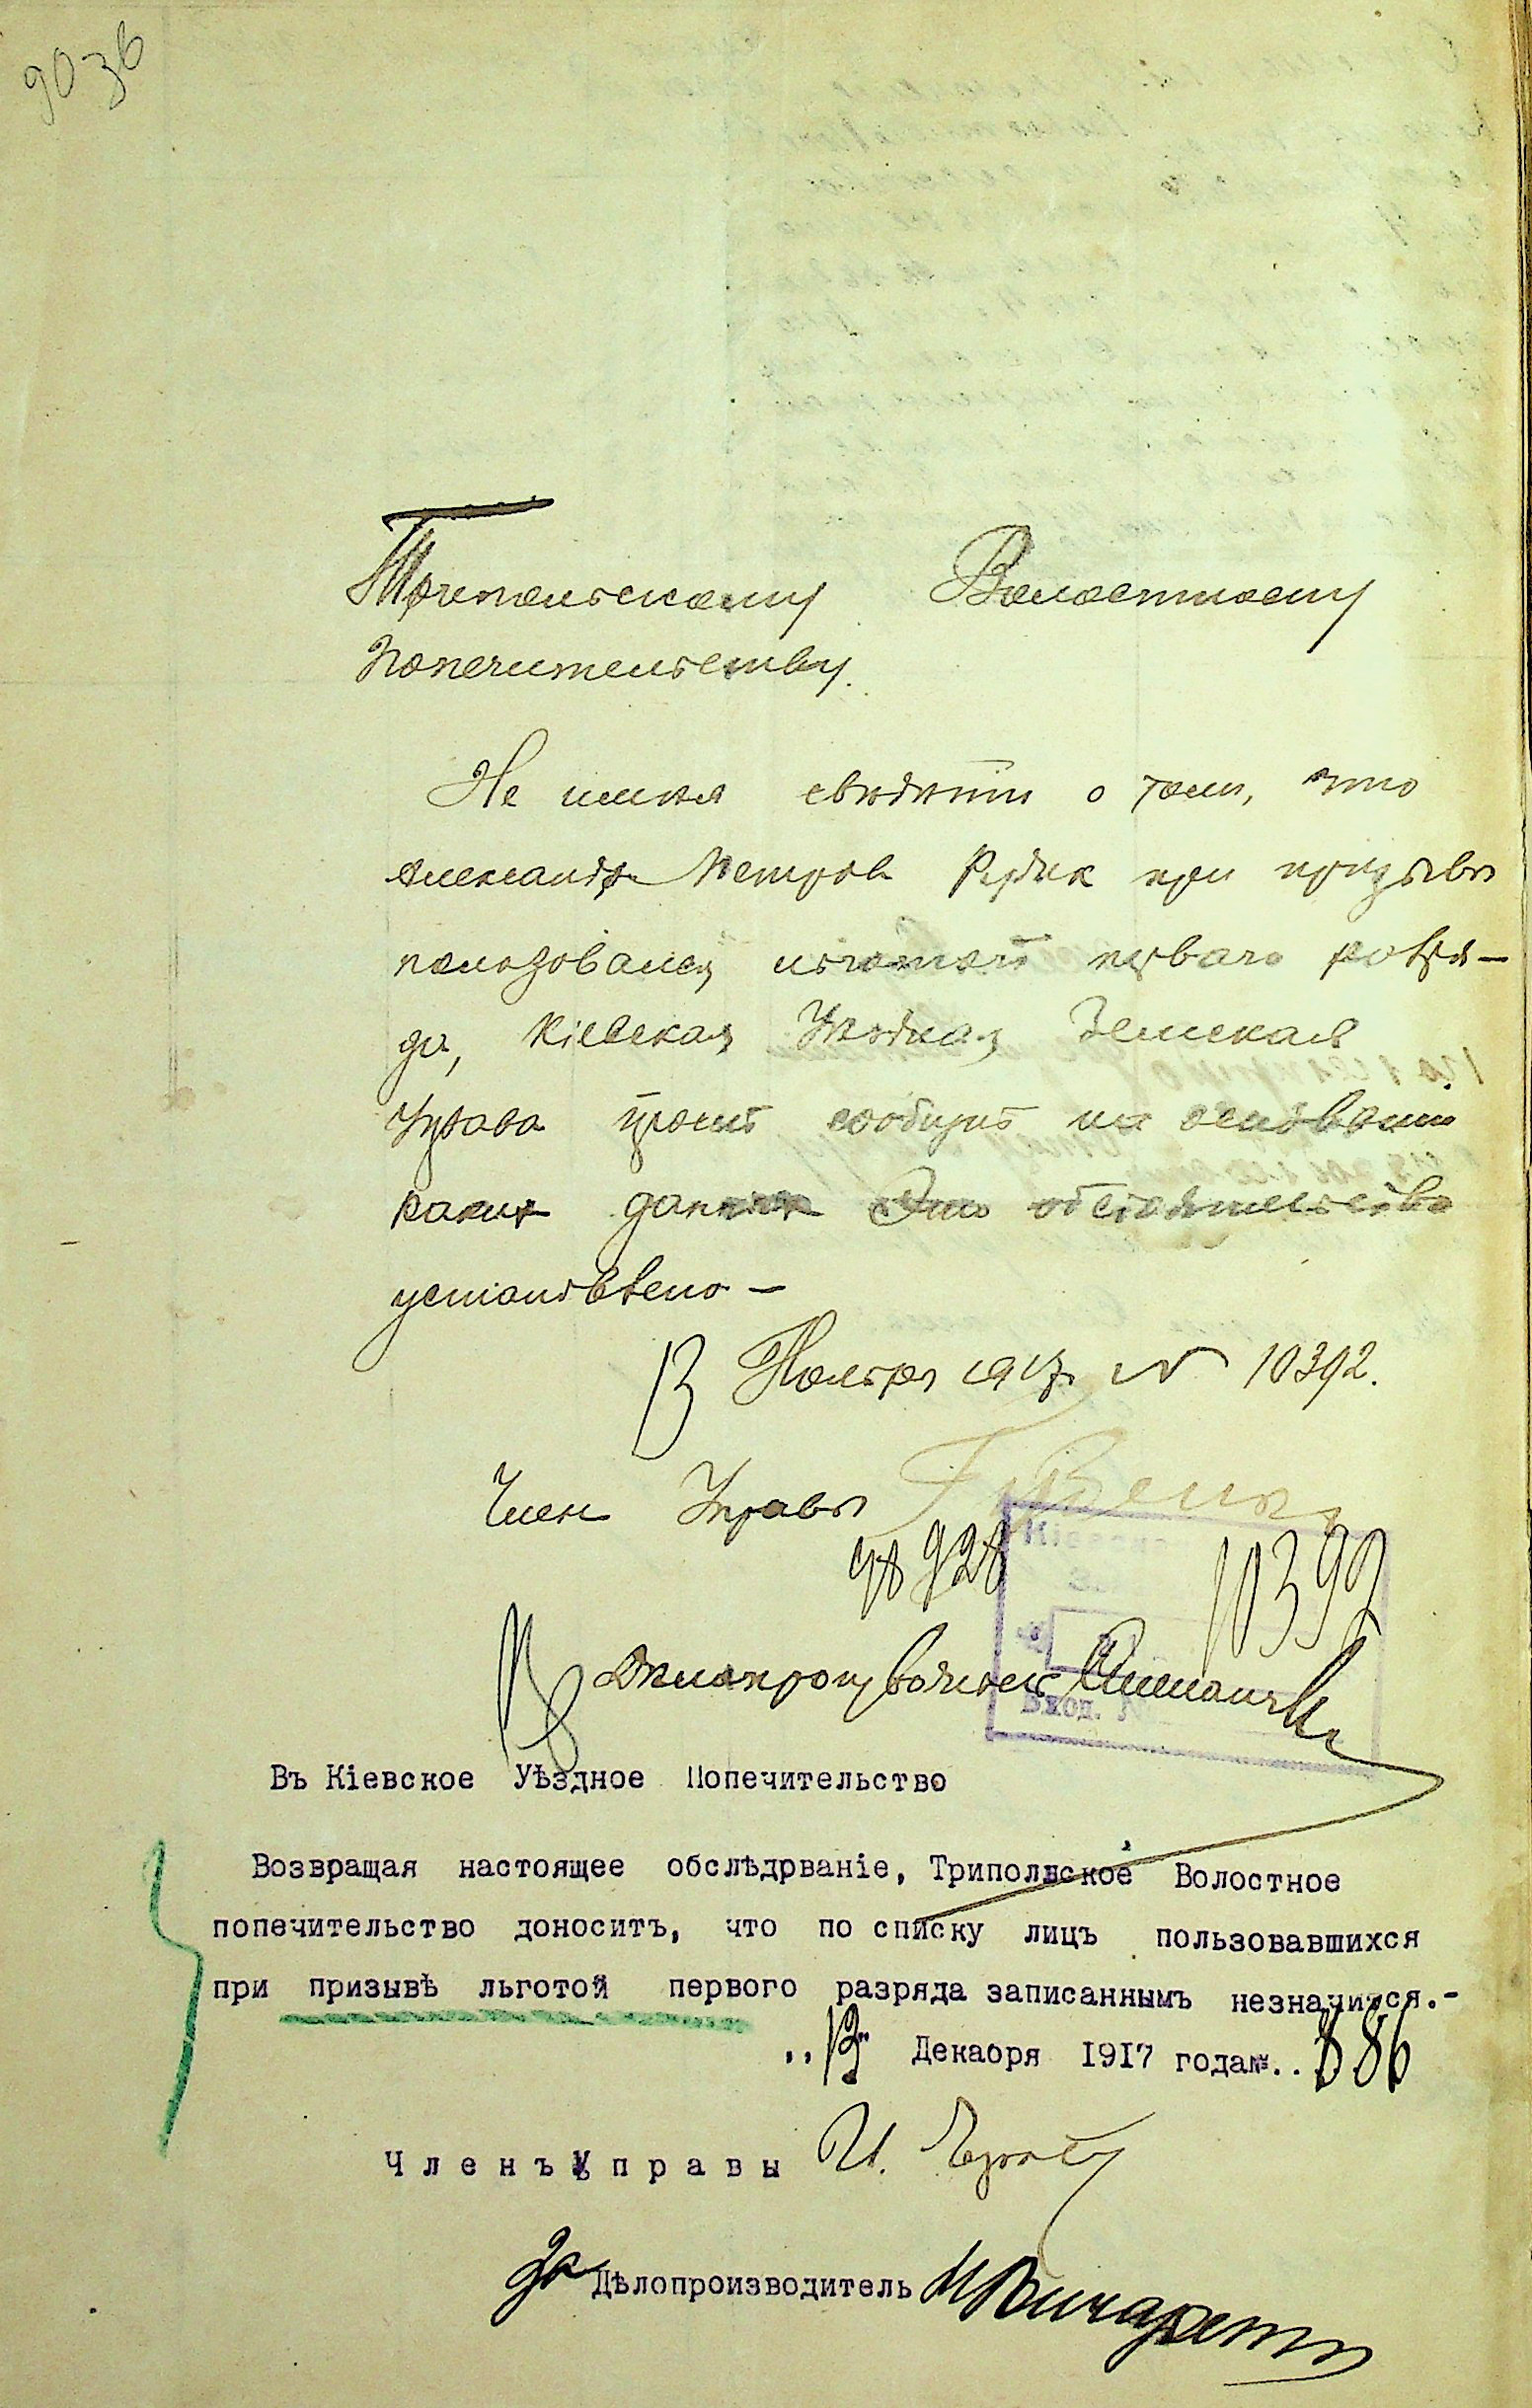 903б
Трипольскому Волостному
Попечительству.
Не имея сведений о том, что
Александр Петров Рудик при призыве
пользовался льготой первого разря-
да, Кіевская Уездная Земская
Управа просит сообщить на основании
каких данных это обстоятельство
установлено —
13 Ноября 1917 № 10392.
Член Управы
98928 10392
Кіевск
Делопроизводитель
Вход. №
Въ Кіевское Уѣздное Попечительство
Возвращая настоящее обслѣдрваніе, Трипольское Волостное
попечительство доноситъ, что по списку лицъ пользовавшихся
при призывѣ льготой первого разряда записаннымъ незначится.-
„13" Декабря 1917 года№.. 886
Членъ Управы И.
За Дѣлопроизводитель